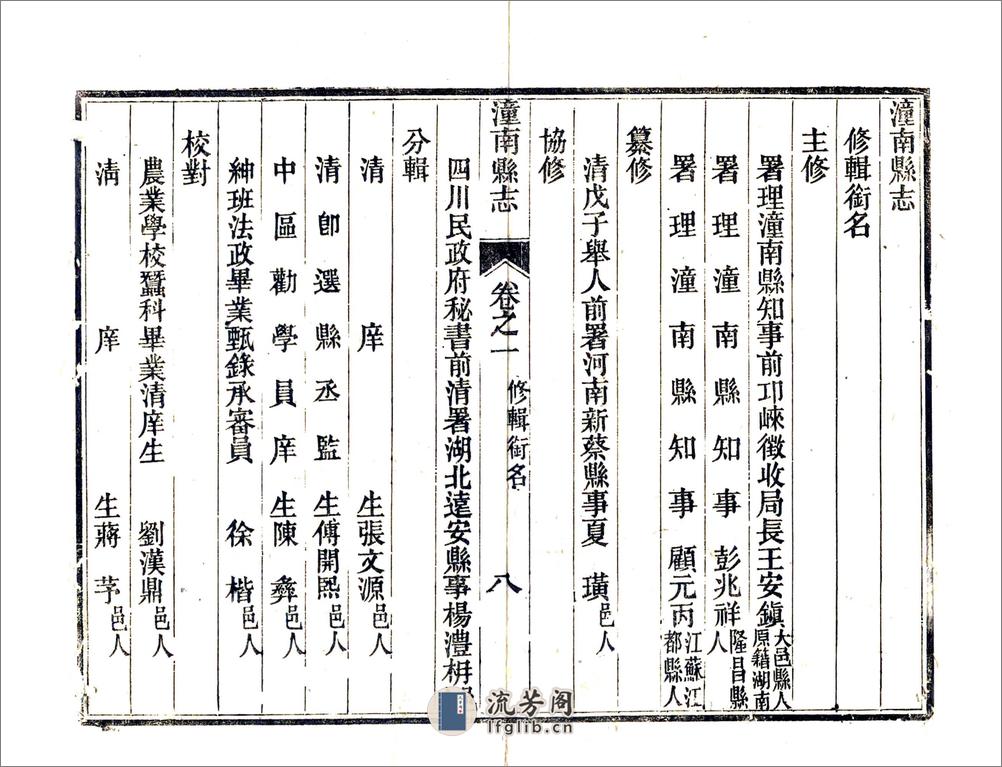 潼南縣志
修輯銜名
主修
署理潼南縣知事前邛崍徵收局長王安鎭大邑縣人原籍湖南
署理潼南縣知事彭兆祥隆昌縣人
署理潼南縣知事顧元丙江蘇江都縣人
纂修
清戊子舉人前署河南新蔡縣事夏璜邑人
協修
潼南縣志 卷之一 修輯銜名 八
四川民政府秘書前清署湖北遠安縣事楊澧
分輯
清庠生張文源邑人
清卽選縣丞監生傅開熙邑人
中區勸學員庠生陳彝邑人
紳班法政畢業甄錄承審員徐楷邑人
校對
農業學校蠶科畢業清庠生劉漢鼎邑人
清庠生蔣茅邑人
流芳阁
lfglib.cn